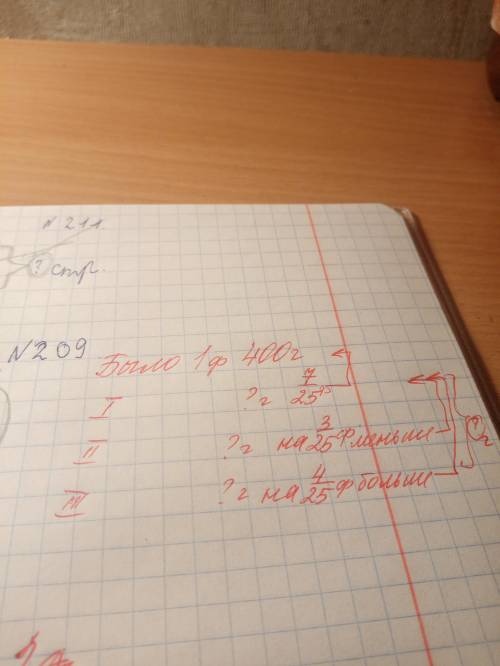 N 211.
? стр.
N209
Было 1ф 400г
I ?г 7/25
II ?г на 3/25 ф меньше
III ?г на 4/25 ф больше
?г